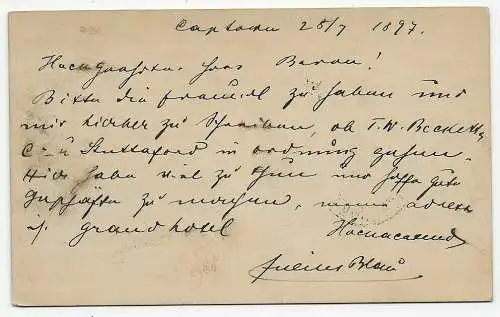 Captown 28/7 1897.
Hochgeehrter Herr Baron!
Bitte die freundl zu haben und
mir hierher zu schreiben, ob T. W. Beckett &
C - u Stuttaford in ordnung gehen.
Hier habe viel zu thun und hoffe gute
Geschäfte zu machen, meine adresse
is grand hotel
Hochachtend
Julius Blau